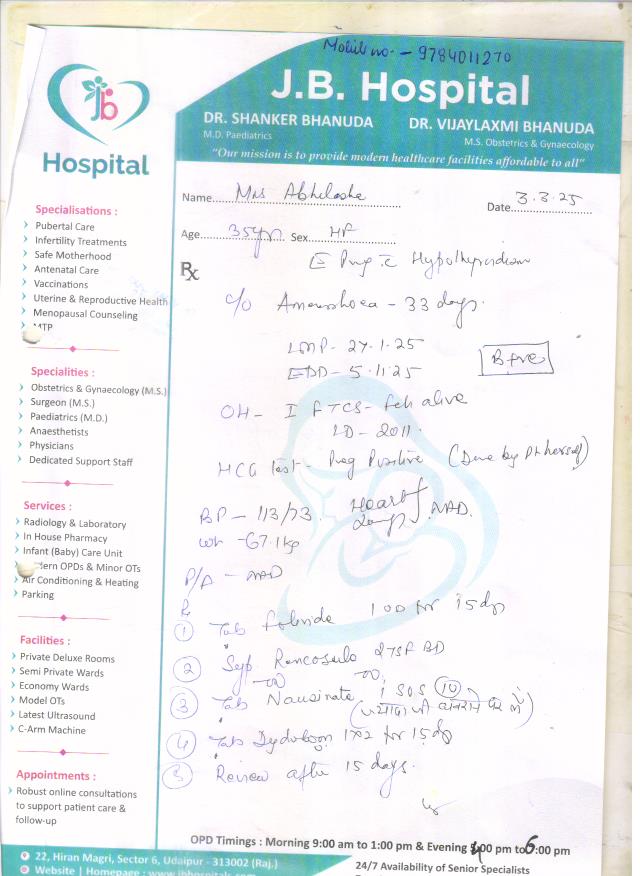 Mobile no. - 9784011270
J.B. Hospital
DR. SHANKER BHANUDA
M.D. Paediatrics
DR. VIJAYLAXMI BHANUDA
M.S. Obstetrics & Gynaecology
"Our mission is to provide modern healthcare facilities affordable to all"
jb
Hospital
Name Mrs Abhilasha
Date 3.3.25
Age 35yrs Sex HF
Rx
E Preg c Hypothyroidism
c/o Amenorrhoea - 33 days.
LMP - 27.1.25
EDD - 5.11.25
B +ve
OH - I FTCS - Fch alive
LD - 2011.
HCG test - Preg Positive (Done by Pt herself)
BP - 113/73. Heart NAD.
wt - 67.1kg
P/A - NAD
R
1 Tab Folvide 100 for 15 dys
2 Syp. 2TSF BD
3 Tab Nausinate 1 SOS 10
4 Tab Dydoboon 1x2 for 15 dys
5 Review after 15 days.
Specialisations :
Pubertal Care
Infertility Treatments
Safe Motherhood
Antenatal Care
Vaccinations
Uterine & Reproductive Health
Menopausal Counseling
MTP
Specialities :
Obstetrics & Gynaecology (M.S.)
Surgeon (M.S.)
Paediatrics (M.D.)
Anaesthetists
Physicians
Dedicated Support Staff
Services :
Radiology & Laboratory
In House Pharmacy
Infant (Baby) Care Unit
dern OPDs & Minor OTs
Air Conditioning & Heating
Parking
Facilities :
Private Deluxe Rooms
Semi Private Wards
Economy Wards
Model OTs
Latest Ultrasound
C-Arm Machine
Appointments :
Robust online consultations
to support patient care &
follow-up
OPD Timings : Morning 9:00 am to 1:00 pm & Evening 4:00 pm to 6:00 pm
22, Hiran Magri, Sector 6, Udaipur - 313002 (Raj.)
24/7 Availability of Senior Specialists
Website | Homepage : www.jbhospitals.com